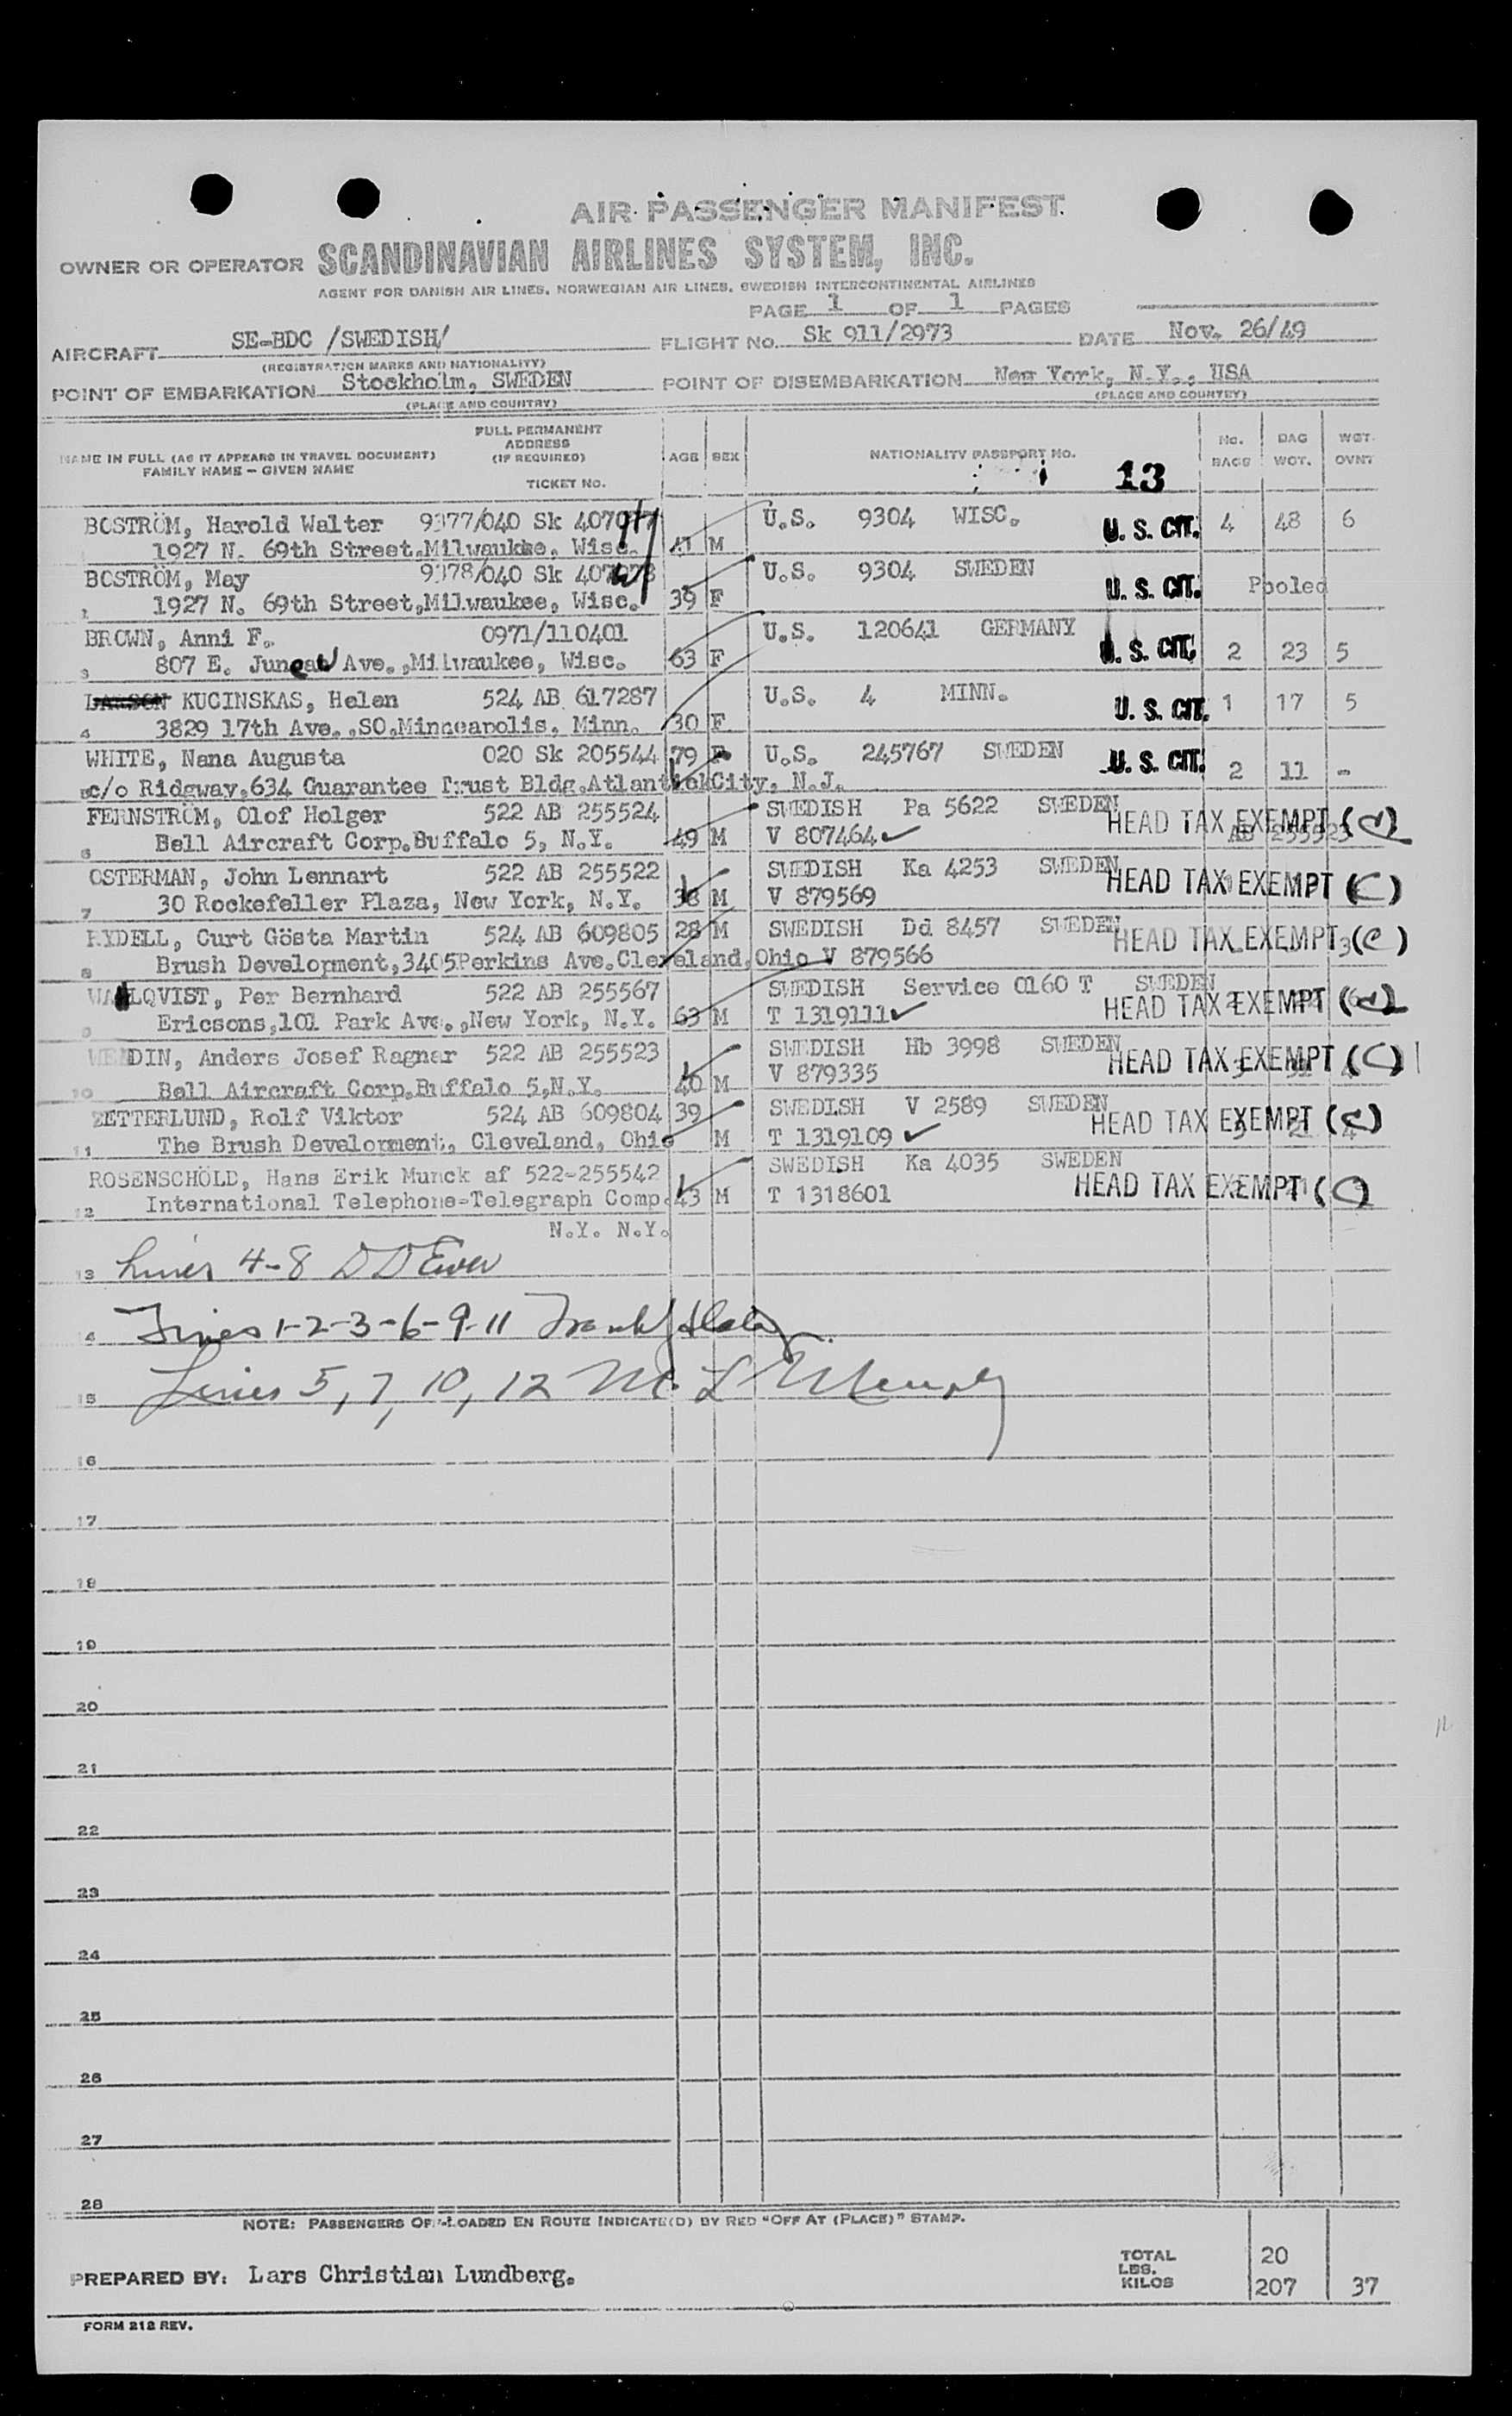 AIR PASSENGER MANIFEST
OWNER OR OPERATOR SCANDINAVIAN AIRLINES SYSTEM, INC.
AGENT FOR DANISH AIR LINES, NORWEGIAN AIR LINES, SWEDISH INTERCONTINENTAL AIRLINES
PAGE 1 OF 1 PAGES
AIRCRAFT SE-BDC /SWEDISH/ FLIGHT NO. Sk 911/2973 DATE Nov. 26/49
(REGISTRATION MARKS AND NATIONALITY)
POINT OF EMBARKATION Stockholm, SWEDEN POINT OF DISEMBARKATION New York, N.Y., USA
(PLACE AND COUNTRY) (PLACE AND COUNTRY)
NAME IN FULL (AS IT APPEARS IN TRAVEL DOCUMENT) FAMILY NAME – GIVEN NAME FULL PERMANENT ADDRESS (IF REQUIRED) TICKET NO. AGE SEX NATIONALITY PASSPORT NO. No. BAGS BAG WGT. WGT. OVNT
13
BOSTRÖM, Harold Walter 9377/040 Sk U.S. 9304 WISC. U. S. CIT. 4 48 6
1927 N. 69th Street, Milwaukee, Wisc. 41 M
BOSTRÖM, May 9378/040 Sk U.S. 9304 SWEDEN U. S. CIT. Pooled
2 1927 N. 69th Street, Milwaukee, Wisc. 39 F
BROWN, Anni F. 0971/110401 U.S. 120641 GERMANY U. S. CIT. 2 23 5
3 807 E. Juneau Ave., Milwaukee, Wisc. 63 F
LARSON KUCINSKAS, Helen 524 AB 617287 U.S. 4 MINN. U. S. CIT. 1 17 5
4 3829 17th Ave.,SO.Minneapolis, Minn. 30 F
WHITE, Nana Augusta 020 Sk 205544 79 F U.S. 245767 SWEDEN U. S. CIT. 2 11 -
c/o Ridgway,634 Guarantee Trust Bldg.Atlantic City, N.J.
FERNSTRÖM, Olof Holger 522 AB 255524 SWEDISH Pa 5622 SWEDEN HEAD TAX EXEMPT
6 Bell Aircraft Corp.Buffalo 5, N.Y. 49 M V 807464 ✓
OSTERMAN, John Lennart 522 AB 255522 SWEDISH Ka 4253 SWEDEN HEAD TAX EXEMPT (C)
7 30 Rockefeller Plaza, New York, N.Y. 38 M V 879569
RYDELL, Curt Gösta Martin 524 AB 609805 28 M SWEDISH Dd 8457 SWEDEN HEAD TAX EXEMPT 3 (C)
8 Brush Development,3405 Perkins Ave.Cleveland,Ohio V 879566
WAHLQVIST, Per Bernhard 522 AB 255567 SWEDISH Service 0160 T SWEDEN HEAD TAX EXEMPT
9 Ericsons,101 Park Ave.,New York, N.Y. 63 M T 1319111 ✓
WENDIN, Anders Josef Ragnar 522 AB 255523 SWEDISH Hb 3998 SWEDEN HEAD TAX EXEMPT (C)
10 Bell Aircraft Corp.Buffalo 5,N.Y. 40 M V 879335
ZETTERLUND, Rolf Viktor 524 AB 609804 39 SWEDISH V 2589 SWEDEN HEAD TAX EXEMPT
11 The Brush Development, Cleveland, Ohio M T 1319109 ✓
ROSENSCHÖLD, Hans Erik Munck af 522-255542 SWEDISH Ka 4035 SWEDEN HEAD TAX EXEMPT (C)
12 International Telephone-Telegraph Comp. 43 M T 1318601
N.Y. N.Y.
13 Lines 4-8 D D Ewer
14 Lines 1-2-3-6-9-11 Frank
15 Lines 5, 7, 10, 12 M. L Murphy
16
17
18
19
20
21
22
23
24
25
26
27
28
NOTE: PASSENGERS OFF-LOADED EN ROUTE INDICATE(D) BY RED "OFF AT (PLACE)" STAMP.
PREPARED BY: Lars Christian Lundberg.
TOTAL 20
LBS.
KILOS 207 37
FORM 212 REV.